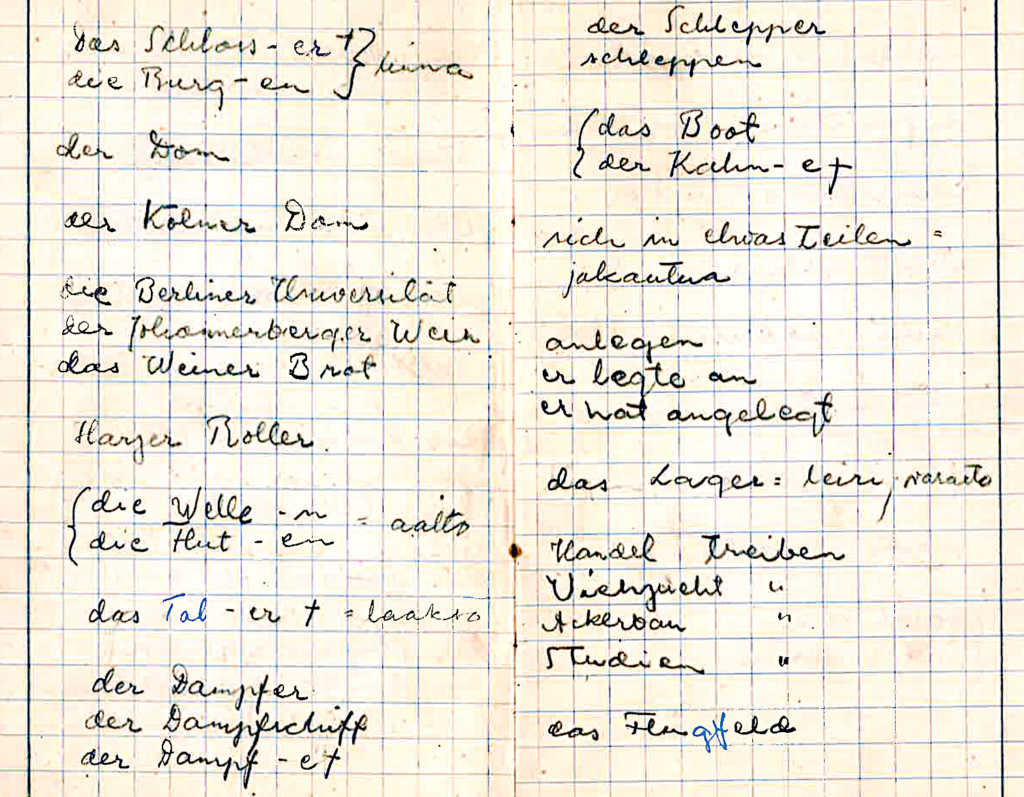 das Schloss - er †
die Burg - en } linna
der Dom
der Kölner Dom
die Berliner Universität
der Johannerberger Wein
das Weiner Brot
Harzer Roller.
die Welle - n
die Flut - en = aalto
das Tal - er † = laakso
der Dampfer
der Dampfschiff
der Dampf - e †
der Schlepper
schleppen
das Boot
der Kahn - e †
sich in etwas teilen =
jakautua
anlegen
er legte an
er hat angelegt
das Lager = leiri, varasto
Handel treiben
Viehzucht "
Ackerbau "
Studien "
das Flugfeld